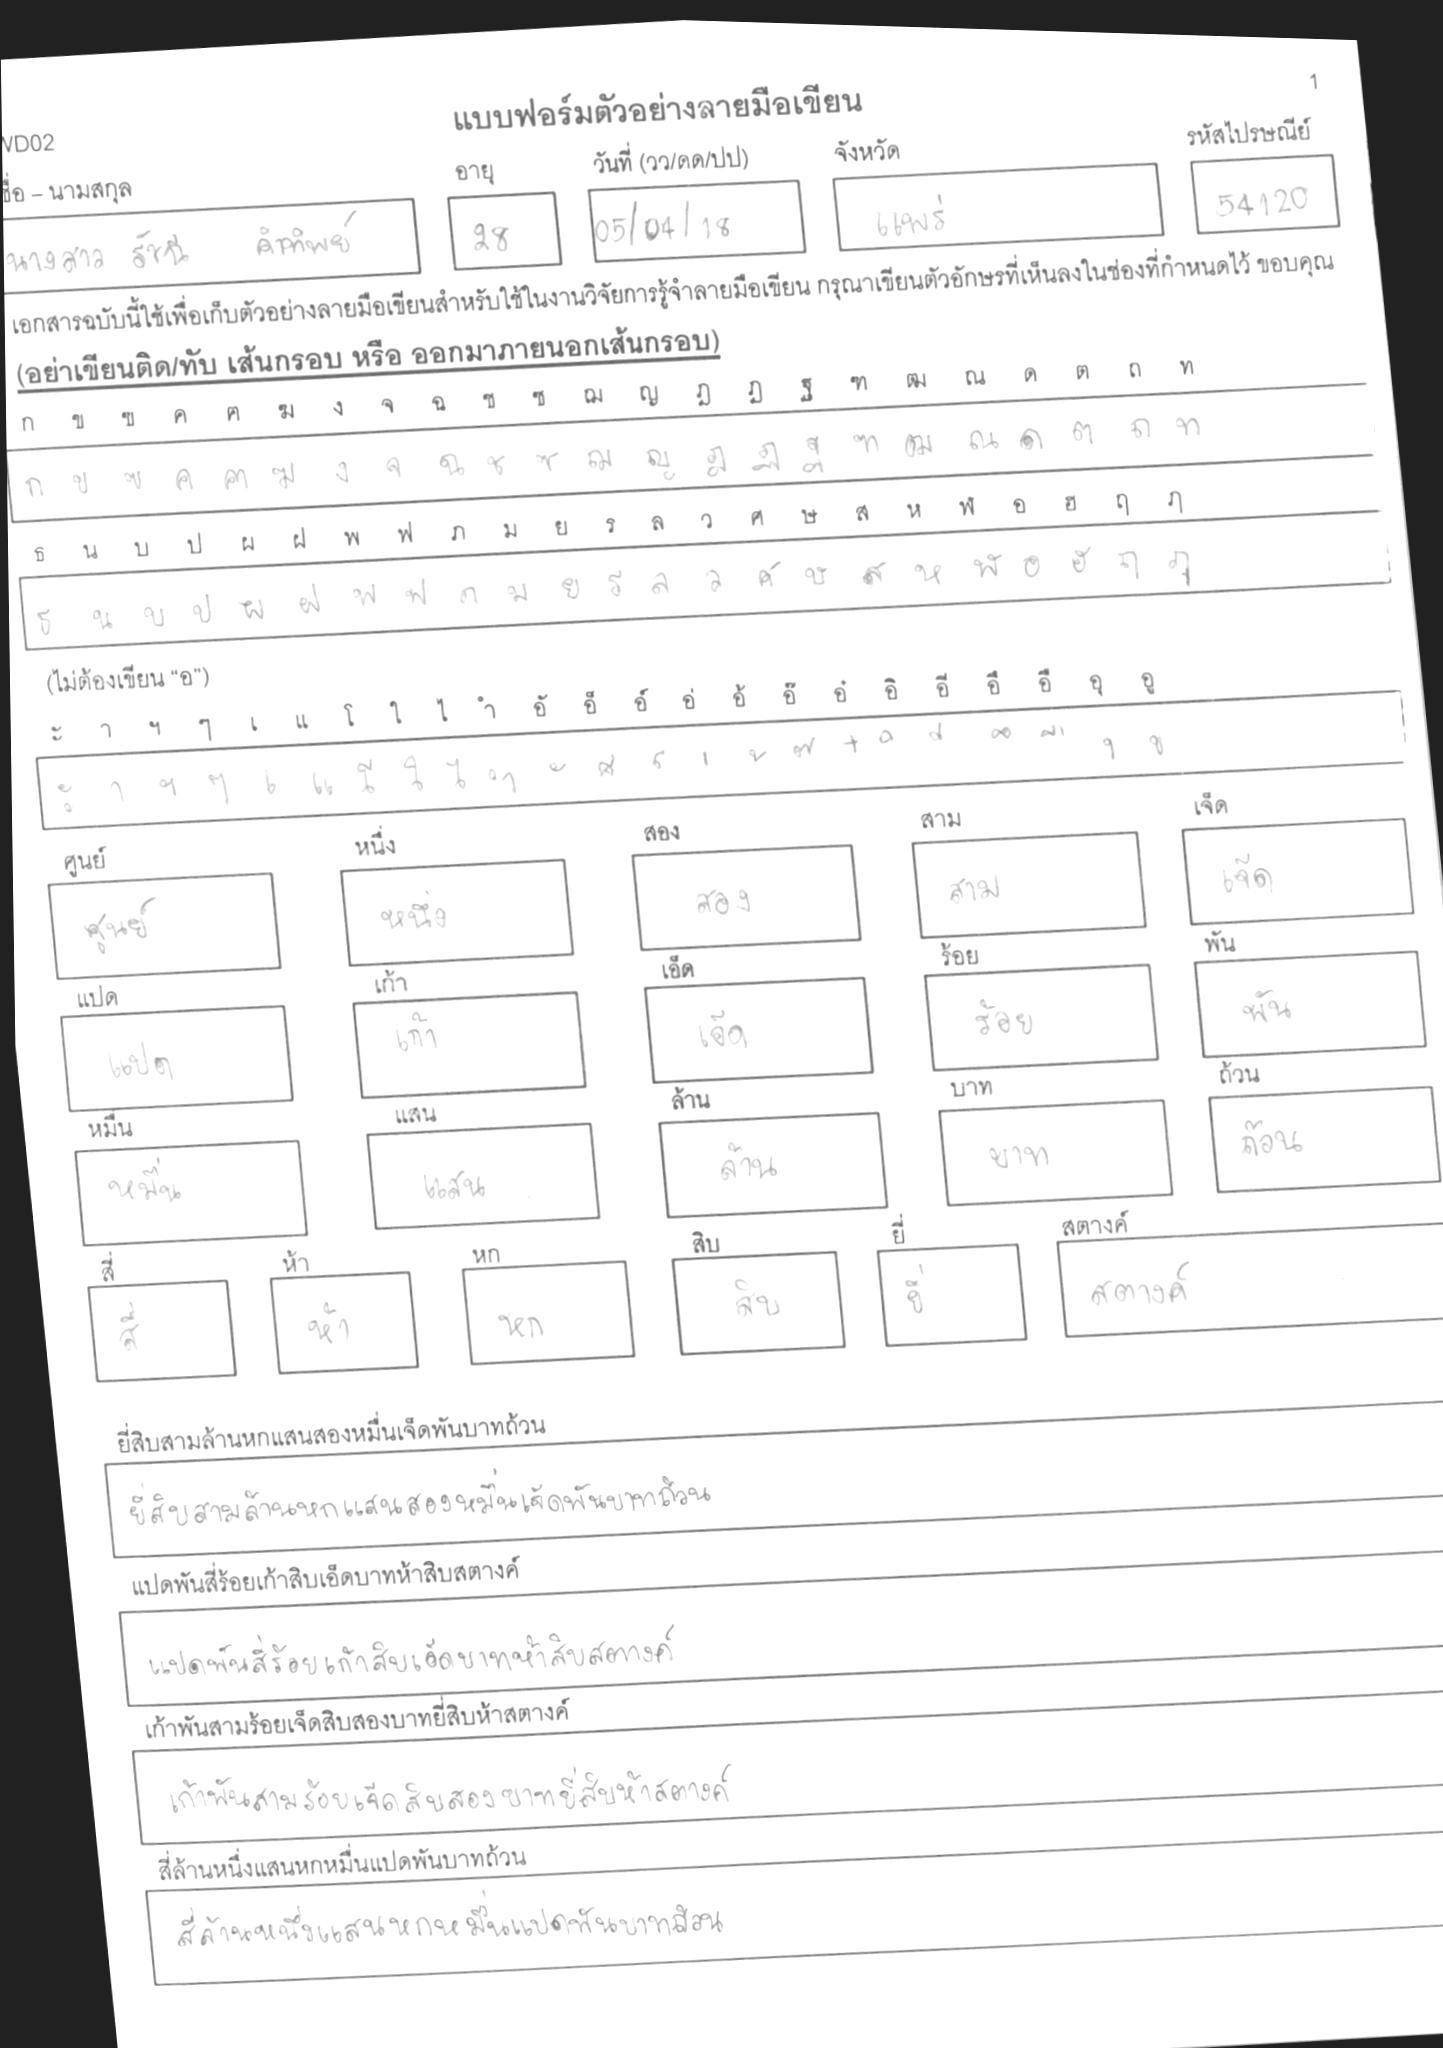 1
แบบฟอร์มตัวอย่างลายมือเขียน
WD02
ชื่อ – นามสกุล อายุ วันที่ (วว/ดด/ปป) จังหวัด รหัสไปรษณีย์
นางสาว 28 05/04/18 แพร่ 54120
เอกสารฉบับนี้ใช้เพื่อเก็บตัวอย่างลายมือเขียนสำหรับใช้ในงานวิจัยการรู้จำลายมือเขียน กรุณาเขียนตัวอักษรที่เห็นลงในช่องที่กำหนดไว้ ขอบคุณ
(อย่าเขียนติด/ทับ เส้นกรอบ หรือ ออกมาภายนอกเส้นกรอบ)
ก ข ฃ ค ฅ ฆ ง จ ฉ ช ซ ฌ ญ ฎ ฏ ฐ ฑ ฒ ณ ด ต ถ ท
ก ข ฃ ค ฅ ฆ ง จ ฉ ช ซ ฌ ญ ฎ ฏ ฐ ฑ ฒ ณ ด ต ถ ท
ธ น บ ป ผ ฝ พ ฟ ภ ม ย ร ล ว ศ ษ ส ห ฬ อ ฮ ฤ ฦ
ธ น บ ป ผ ฝ พ ฟ ภ ม ย ร ล ว ศ ษ ส ห ฬ อ ฮ ฤ ฦ
(ไม่ต้องเขียน “อ”)
ะ า ฯ ๆ เ แ โ ใ ไ ำ อั อ็ อ์ อ่ อ้ อ๊ อ๋ อิ อี อึ อื อุ อู
ะ า ฯ ๆ เ แ โ ใ ไ ำ ั ็ ์ ่ ้ ๊ ๋ ิ ี ึ ื ุ ู
ศูนย์ หนึ่ง สอง สาม เจ็ด
ศูนย์ หนึ่ง สอง สาม เจ็ด
แปด เก้า เอ็ด ร้อย พัน
แปด เก้า เอ็ด ร้อย พัน
หมื่น แสน ล้าน บาท ถ้วน
หมื่น แสน ล้าน บาท ถ้วน
สี่ ห้า หก สิบ ยี่ สตางค์
สี่ ห้า หก สิบ ยี่ สตางค์
ยี่สิบสามล้านหกแสนสองหมื่นเจ็ดพันบาทถ้วน
ยี่สิบสามล้านหกแสนสองหมื่นเจ็ดพันบาทถ้วน
แปดพันสี่ร้อยเก้าสิบเอ็ดบาทห้าสิบสตางค์
แปดพันสี่ร้อยเก้าสิบเอ็ดบาทห้าสิบสตางค์
เก้าพันสามร้อยเจ็ดสิบสองบาทยี่สิบห้าสตางค์
เก้าพันสามร้อยเจ็ดสิบสองบาทยี่สิบห้าสตางค์
สี่ล้านหนึ่งแสนหกหมื่นแปดพันบาทถ้วน
สี่ล้านหนึ่งแสนหกหมื่นแปดพันบาทถ้วน